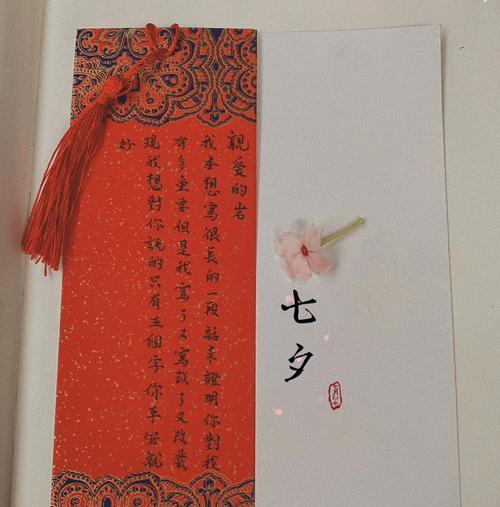 親愛的岩
我本想寫很長的一段話來證明你對我
有多重要但是我寫了又寫改了又改發
現我想對你說的只有五個字你平安就
好
七夕